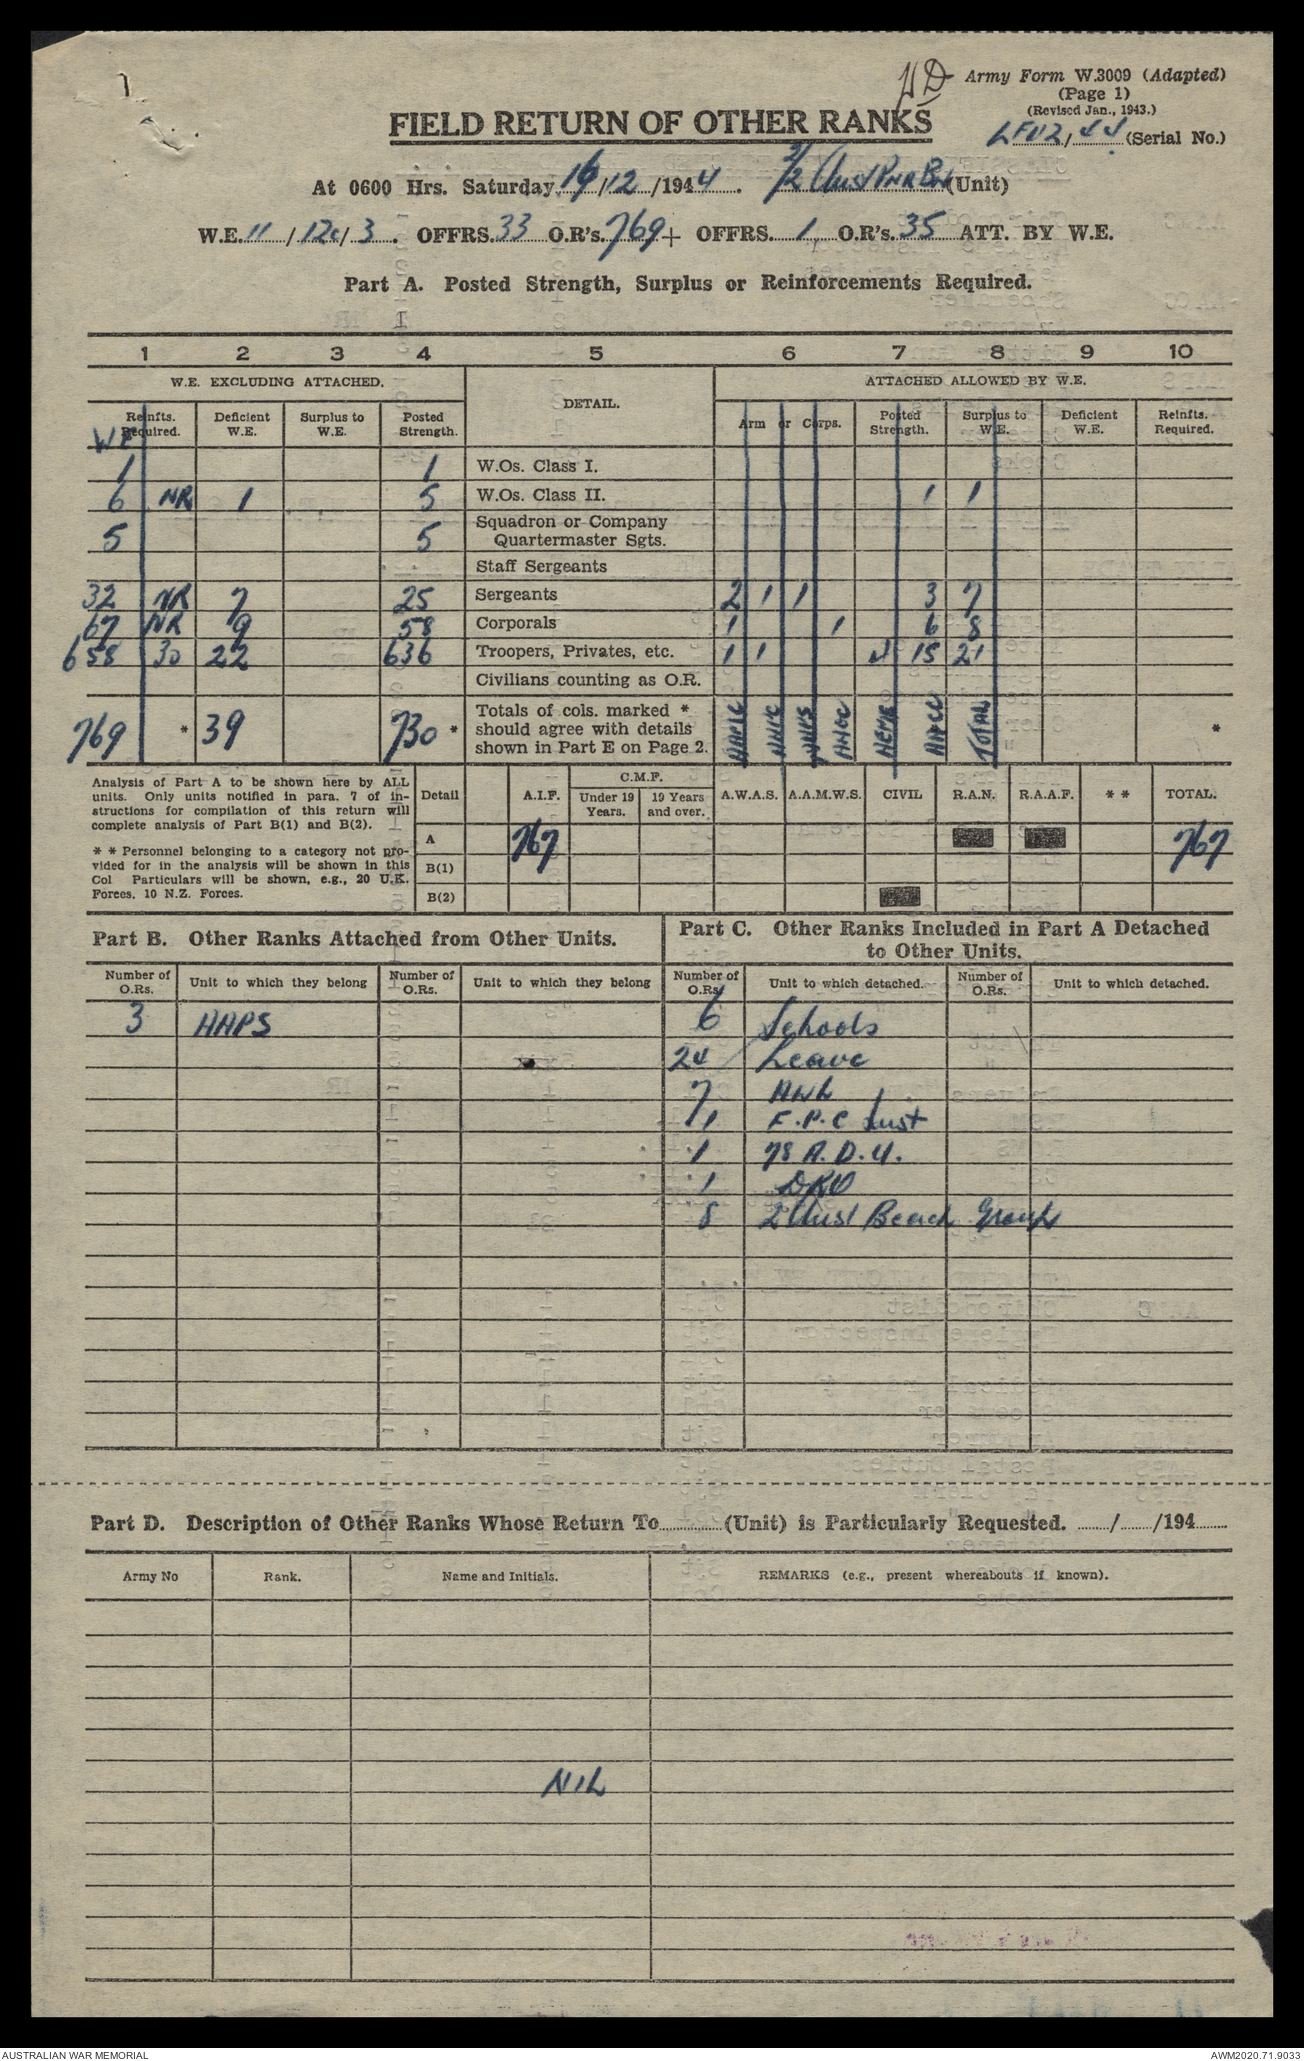 Army Form W.3009 (Adapted)
(Page 1)
(Revised Jan., 1943.)
FIELD RETURN OF OTHER RANKS
LF112/44 (Serial No.)
At 0600 Hrs. Saturday 16/12/1944. 2/2 Aust Pnr Bn (Unit)
W.E. 11/12c/3. OFFRS. 33 O.R's. 769 + OFFRS. 1 O.R's. 35 ATT. BY W.E.
Part A. Posted Strength, Surplus or Reinforcements Required.
1 2 3 4 5 6 7 8 9 10
W.E. EXCLUDING ATTACHED. DETAIL. ATTACHED ALLOWED BY W.E.
WE Reinfts. Required. Deficient W.E. Surplus to W.E. Posted Strength. Arm or Corps. Posted Strength. Surplus to W.E. Deficient W.E. Reinfts. Required.
1 1 W.Os. Class I.
6 NR 1 5 W.Os. Class II. 1 1
5 5 Squadron or Company Quartermaster Sgts.
Staff Sergeants
32 NR 7 25 Sergeants 2 1 1 3 7
67 NR 9 58 Corporals 1 1 6 8
658 30 22 636 Troopers, Privates, etc. 1 1 4 15 21
Civilians counting as O.R.
769 * 39 730 * Totals of cols. marked * should agree with details shown in Part E on Page 2. AACC TOTAL *
Analysis of Part A to be shown here by ALL units. Only units notified in para. 7 of instructions for compilation of this return will complete analysis of Part B(1) and B(2).
* * Personnel belonging to a category not provided for in the analysis will be shown in this Col Particulars will be shown, e.g., 20 U.K. Forces, 10 N.Z. Forces.
Detail A.I.F. C.M.F. Under 19 Years. 19 Years and over. A.W.A.S. A.A.M.W.S. CIVIL R.A.N. R.A.A.F. * * TOTAL.
A 767 767
B(1)
B(2)
Part B. Other Ranks Attached from Other Units.
Part C. Other Ranks Included in Part A Detached to Other Units.
Number of O.Rs. Unit to which they belong Number of O.Rs. Unit to which they belong Number of O.Rs. Unit to which detached. Number of O.Rs. Unit to which detached.
3 AAPS 6 Schools
24 Leave
7 AWL
1 F.P.C Aust
1 78 A.D.U.
1 DRO
8 2 Aust Beach Group
Part D. Description of Other Ranks Whose Return To (Unit) is Particularly Requested. / /194
Army No Rank. Name and Initials. REMARKS (e.g., present whereabouts if known).
NIL
AUSTRALIAN WAR MEMORIAL AWM2020.71.9033